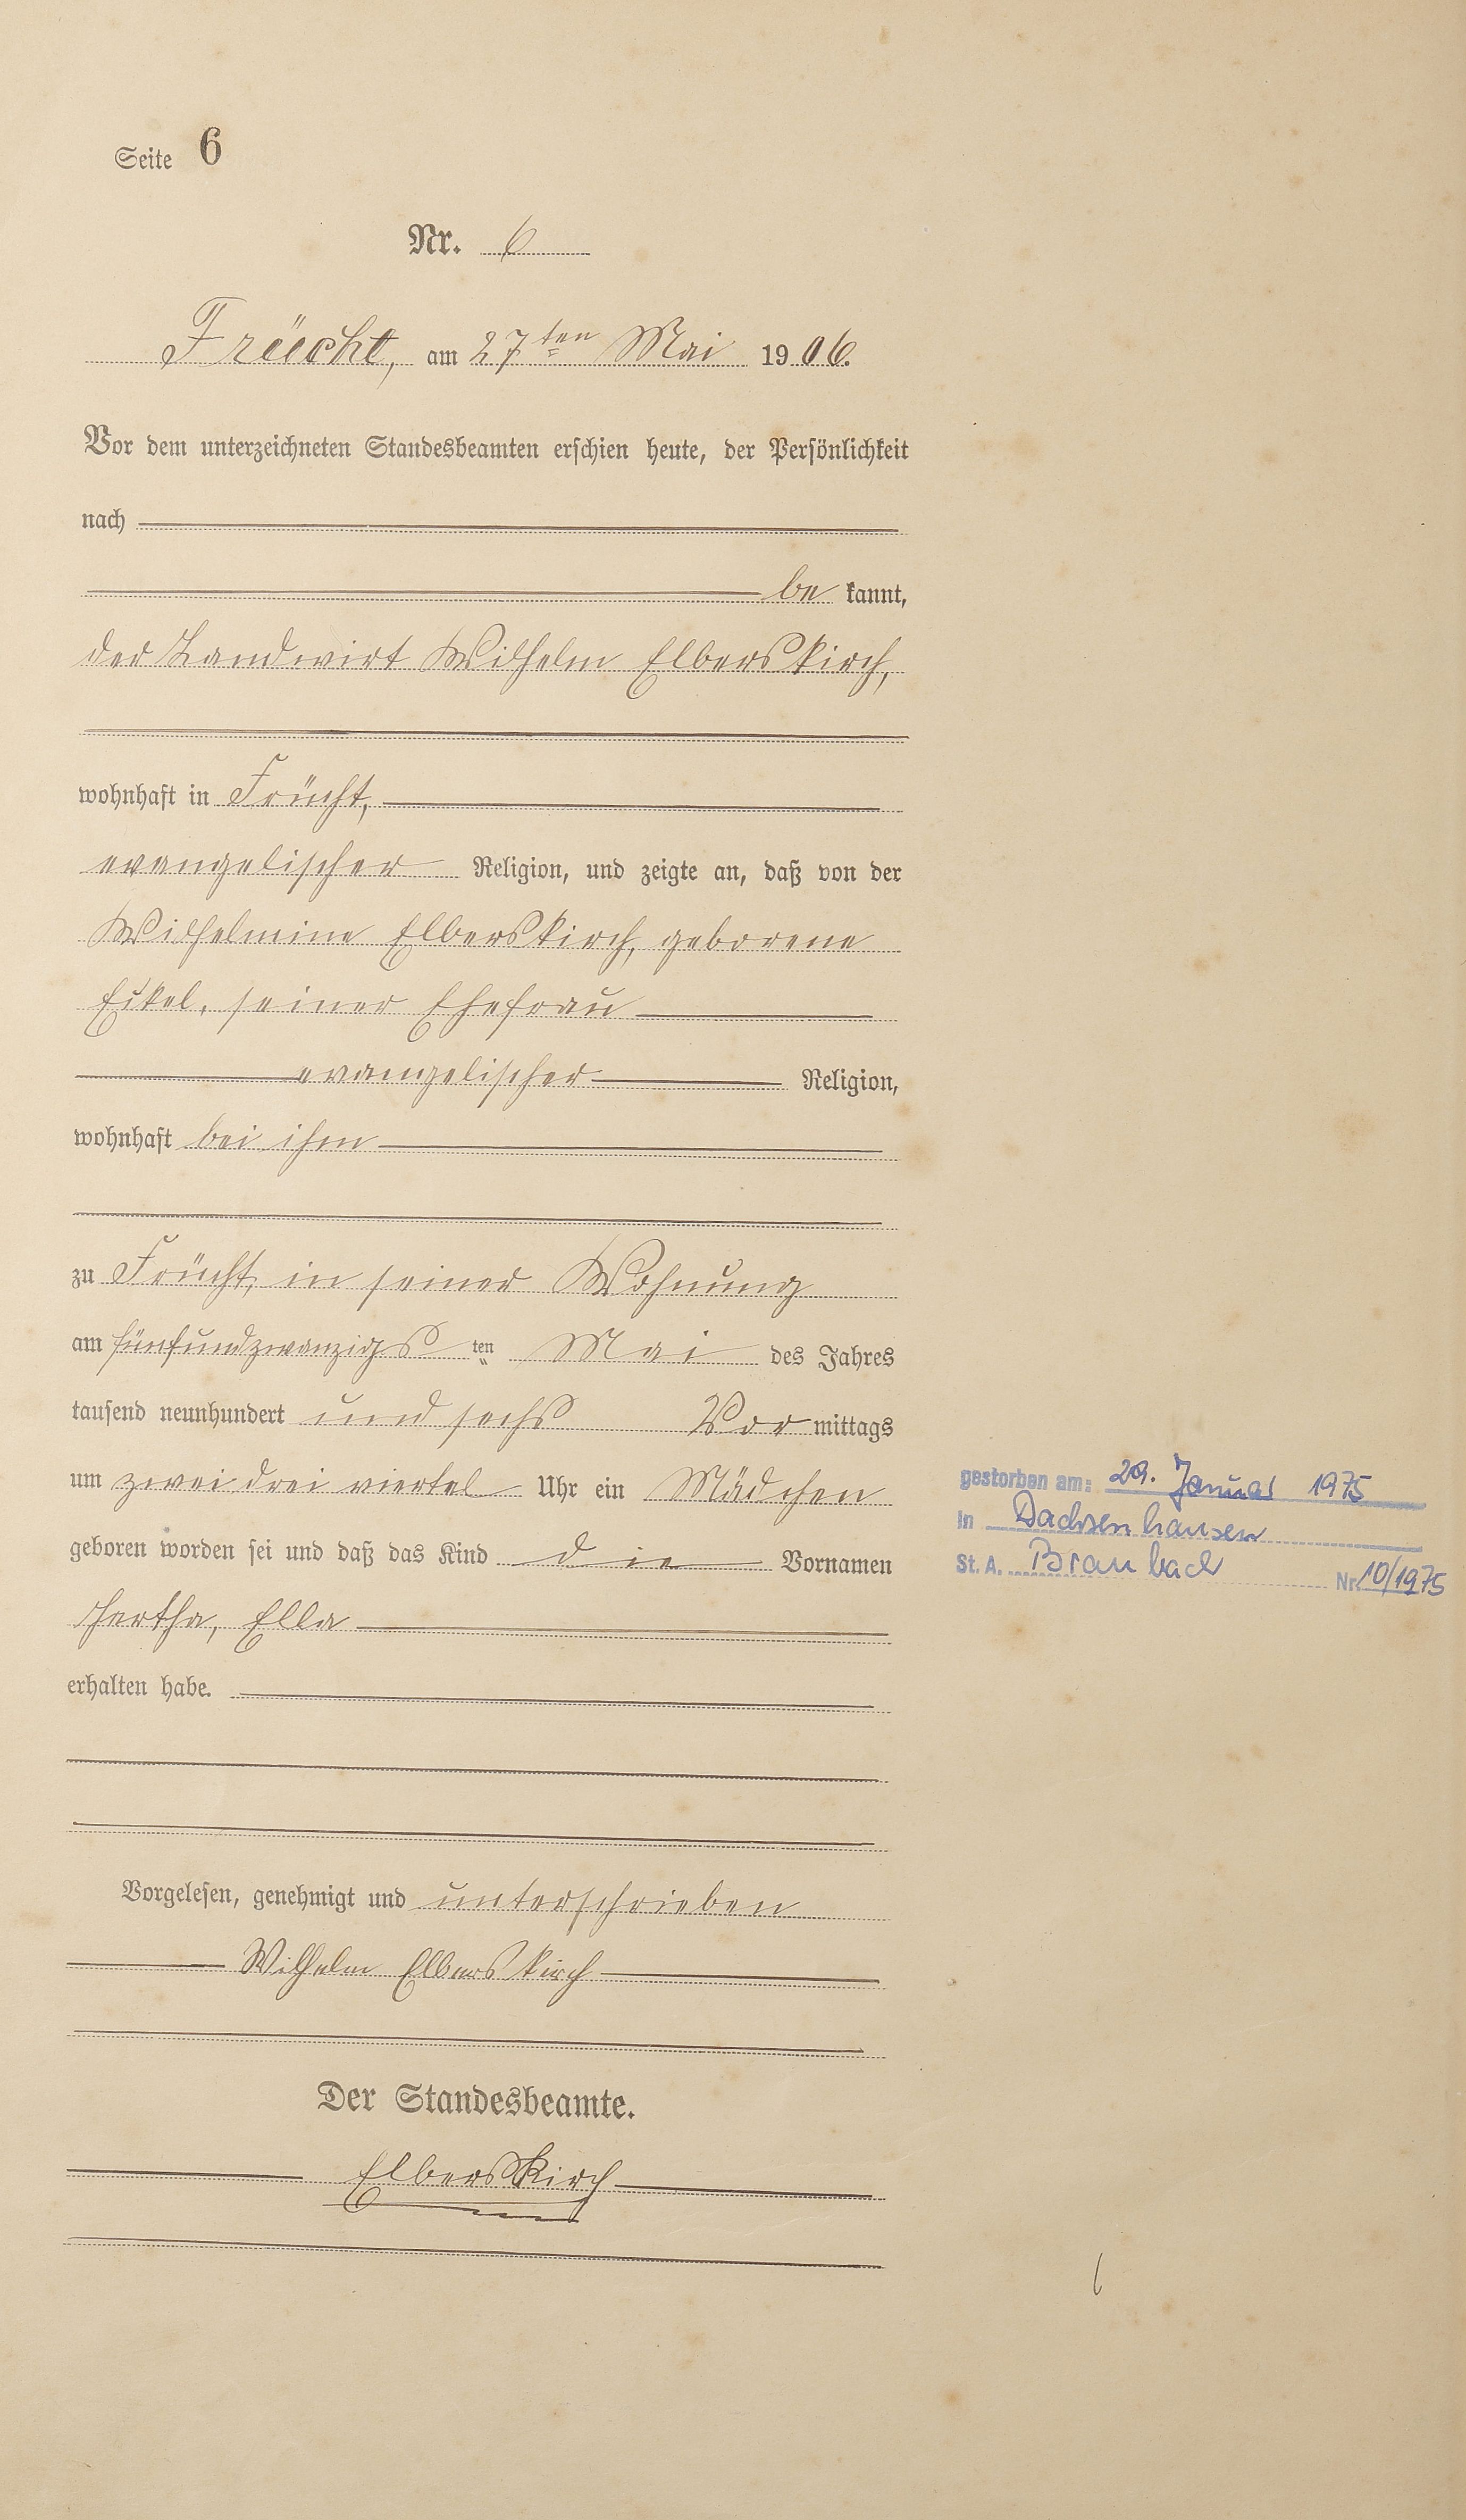 Seite 6
Nr. 6
Früecht, am 27ten Mai 1906.
Vor dem unterzeichneten Standesbeamten erschien heute, der Persönlichkeit
nach
be kannt,
der Landwirt Wilhelm Elberskirch,
wohnhaft in Frücht,
evangelischer Religion, und zeigte an, daß von der
Wilhelmine Elberskirch, geborene
Eckel, seiner Ehefrau
evangelischer Religion,
wohnhaft bei ihm
zu Frücht, in seiner Wohnung
am fünfundzwanzigs ten Mai des Jahres
tausend neunhundert und sechs Vor mittags
um zwei drei viertel Uhr ein Mädchen
geboren worden sei und daß das Kind die Vornamen
Hertha, Ella
erhalten habe.
Vorgelesen, genehmigt und unterschrieben
Wilhelm Elberskirch
Der Standesbeamte.
Elberskirch
gestorben am: 29. Januar 1975
in Dachsenhausen
St. A. Braubach Nr. 10/1975